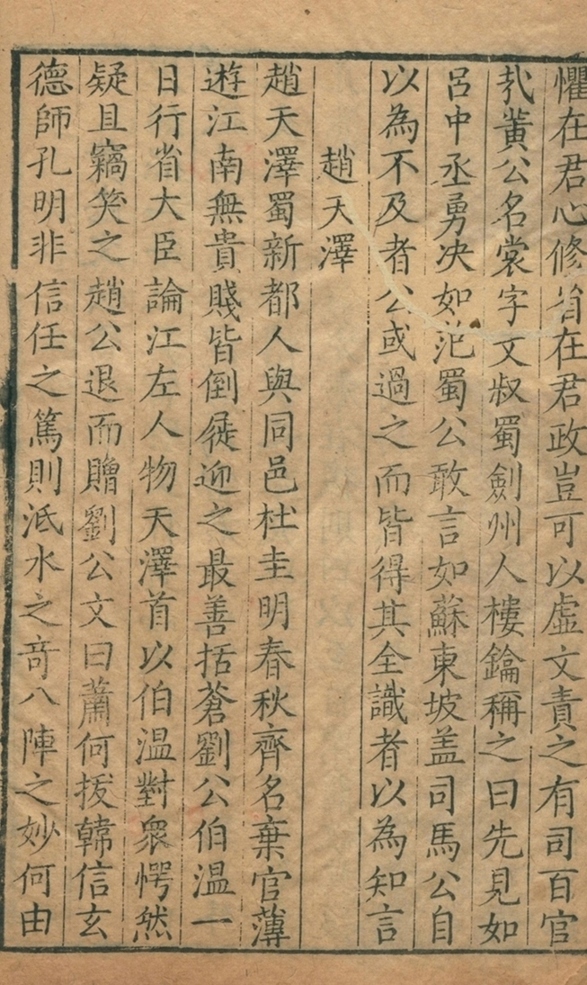 懼在君心修省在君政豈可以虛文責之有司百官
㢤黄公名裳字文叔蜀劍州人樓鑰稱之曰先見如
呂中丞勇決如范蜀公敢言如蘇東坡盖司馬公自
以為不及者公或過之而皆得其全識者以為知言
趙天澤
趙天澤蜀新都人與同邑杜圭明春秋齊名棄官薄
遊江南無貴賤皆倒屣迎之最善括蒼劉公伯温一
日行省大臣論江左人物天澤首以伯温對衆愕然
疑且竊笑之趙公退而贈劉公文曰蕭何拔韓信玄
德師孔明非信任之篤則泜水之竒八陣之妙何由